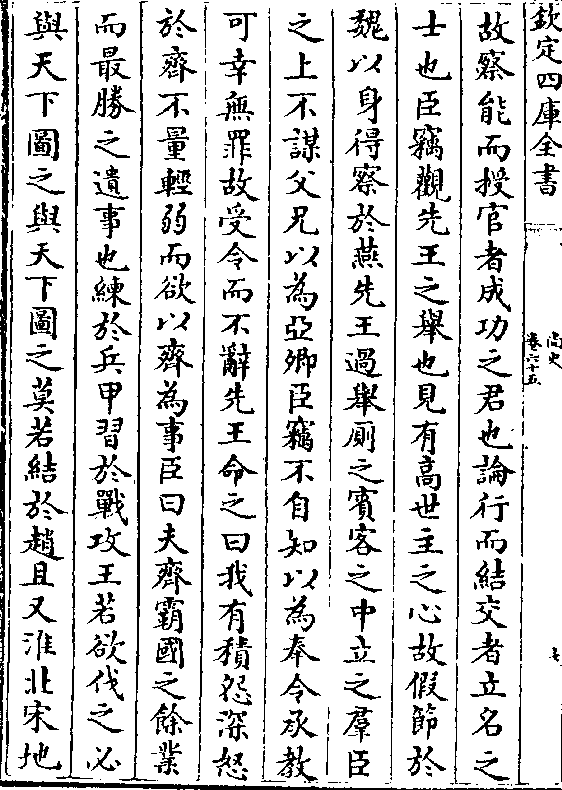 欽定四庫全書
尚史
卷六十五
七
故察能而授官者成功之君也論行而結交者立名之
士也臣竊觀先王之舉也見有高世主之心故假節於
魏以身得察於燕先王過舉厠之賓客之中立之羣臣
之上不謀父兄以為亞卿臣竊不自知以為奉令承教
可幸無罪故受令而不辭先王命之曰我有積怨深怒
於齊不量輕弱而欲以齊為事臣曰夫齊霸國之餘業
而最勝之遺事也練於兵甲習於戰攻王若欲伐之必
與天下圖之與天下圖之莫若結於趙且又淮北宋地